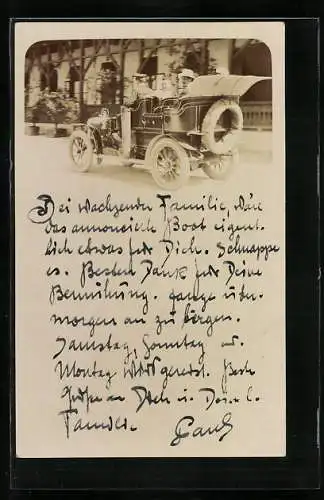 Bei wachsender Familie, wäre
das annoncierte Boot eigent-
lich etwas für Dich. Schnappe
es. Besten Dank für Deine
Bemühung. Fange über-
morgen an zu
Samstag, Sonntag u.
Montag wird gereist. Beste
Grüße an Dich u.
Familie. Paul